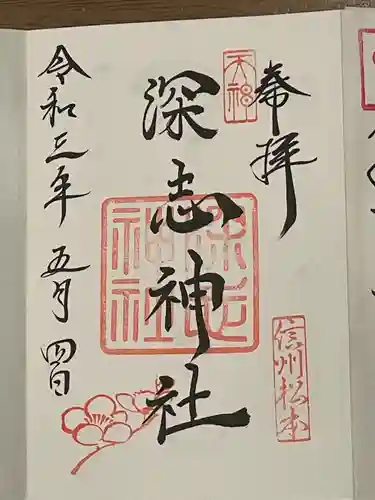 奉拝
天神
信州松本
深志神社
深志神社
令和三年 五月 四日